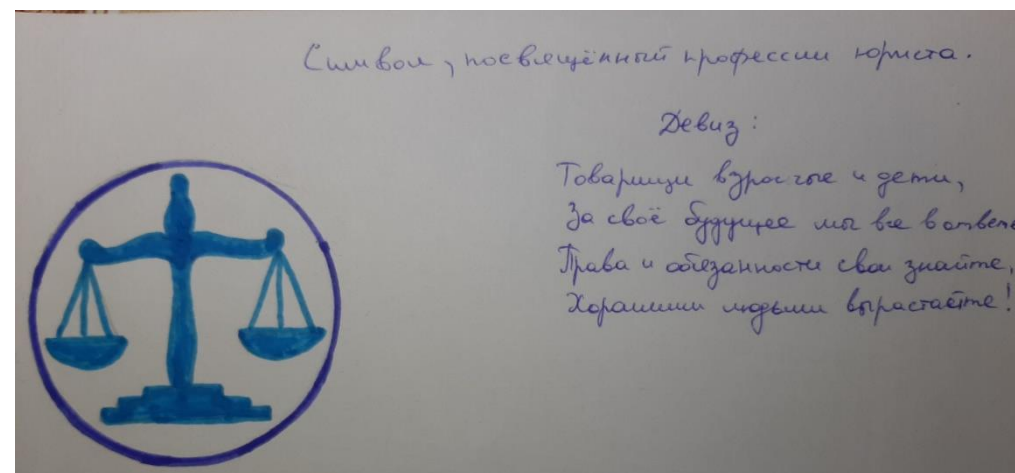 Символ, посвящённый профессии юриста.
Девиз:
Товарищи взрослые и дети,
За своё будущее мы все в ответе
Права и обязанности свои знайте,
Хорошими людьми вырастайте!